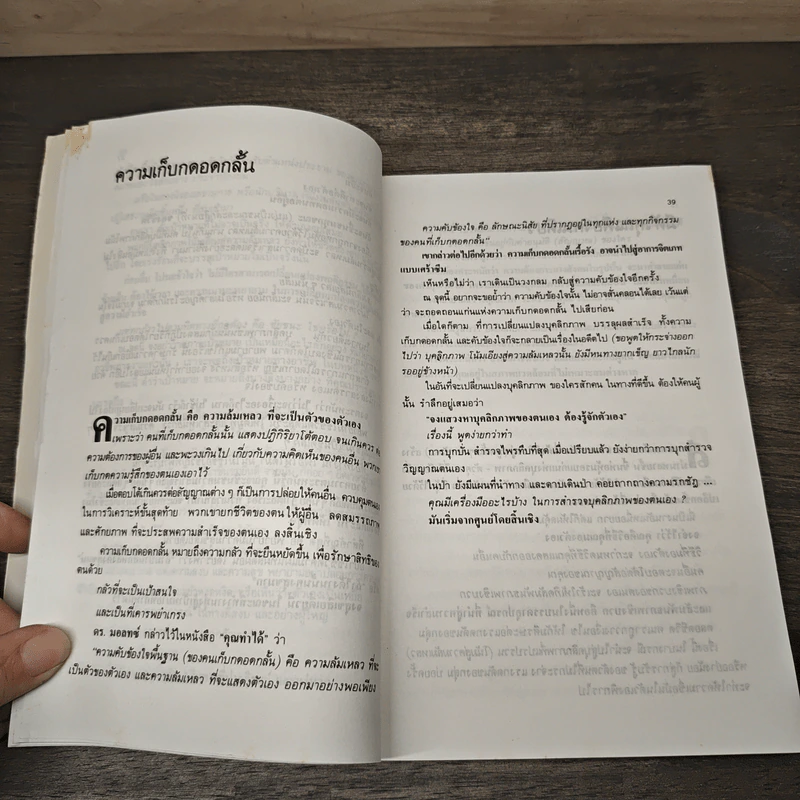 ความเก็บกดอดกลั้น
ความเก็บกดอดกลั้น คือ ความล้มเหลว ที่จะเป็นตัวของตัวเอง
เพราะว่า คนที่เก็บกดอดกลั้นนั้น แสดงปฏิกิริยาโต้ตอบ จนเกินควร
ความต้องการของผู้อื่น และพะวงเกินไป เกี่ยวกับความคิดเห็นของคนอื่น พวกเขา
เก็บกดความรู้สึกของตนเองเอาไว้
เมื่อตอบโต้เกินควรต่อสัญญาณต่าง ๆ ก็เป็นการปล่อยให้คนอื่น ควบคุมตนเอง
ในการวิเคราะห์ขั้นสุดท้าย พวกเขายกชีวิตของตนให้ผู้อื่น ลดสมรรถภาพ
และศักยภาพ ที่จะประสพความสำเร็จของตนเอง ลงสิ้นเชิง
ความเก็บกดอดกลั้น หมายถึงความกลัว ที่จะยืนหยัดขึ้น เพื่อรักษาสิทธิของ
ตนด้วย
กลัวที่จะเป็นเป้าสนใจ
และเป็นที่เคารพยำเกรง
ดร. มอลทซ์ กล่าวไว้ในหนังสือ "คุณทำได้" ว่า
"ความคับข้องใจพื้นฐาน (ของคนเก็บกดอดกลั้น) คือ ความล้มเหลว ที่จะ
เป็นตัวของตัวเอง และความล้มเหลว ที่จะแสดงตัวเอง ออกมาอย่างพอเพียง
39
ความคับข้องใจ คือ ลักษณะนิสัย ที่ปรากฏอยู่ในทุกแห่ง และทุกกิจกรรม
ของคนที่เก็บกดอดกลั้น"
เขากล่าวต่อไปอีกด้วยว่า ความเก็บกดอดกลั้นเรื้อรัง อาจนำไปสู่อาการจิตเภท
แบบเศร้าซึม
เห็นหรือไม่ว่า เราเดินเป็นวงกลม กลับสู่ความคับข้องใจอีกครั้ง
ณ จุดนี้ อยากจะขอย้ำว่า ความคับข้องใจนั้น ไม่อาจสั่นคลอนได้เลย เว้นแต่
ว่า จะถอดถอนแก่นแห่งความเก็บกดอดกลั้น ไปเสียก่อน
เมื่อใดก็ตาม ที่การเปลี่ยนแปลงบุคลิกภาพ บรรลุผลสำเร็จ ทั้งความ
เก็บกดอดกลั้น และคับข้องใจก็จะกลายเป็นเรื่องในอดีตไป (ขอพูดให้กระจ่างออก
ไปว่า บุคลิกภาพ โน้มเอียงสู่ความล้มเหลวนั้น ยังมีหนทางยากเข็ญ ยาวไกลนัก
รออยู่ข้างหน้า)
ในอันที่จะเปลี่ยนแปลงบุคลิกภาพ ของใครสักคน ในทางที่ดีขึ้น ต้องให้คนผู้
นั้น รำลึกอยู่เสมอว่า
"จงแสวงหาบุคลิกภาพของตนเอง ต้องรู้จักตัวเอง"
เรื่องนี้ พูดง่ายกว่าทำ
การบุกบั่น สำรวจไพรทึบที่สุด เมื่อเปรียบแล้ว ยังง่ายกว่าการบุกสำรวจ
วิญญาณตนเอง
ในป่า ยังมีแผนที่นำทาง และดาบเดินป่า คอยถากถางความรกชัฏ ...
คุณมีเครื่องมืออะไรบ้าง ในการสำรวจบุคลิกภาพของตนเอง ?
มันเริ่มจากศูนย์โดยสิ้นเชิง